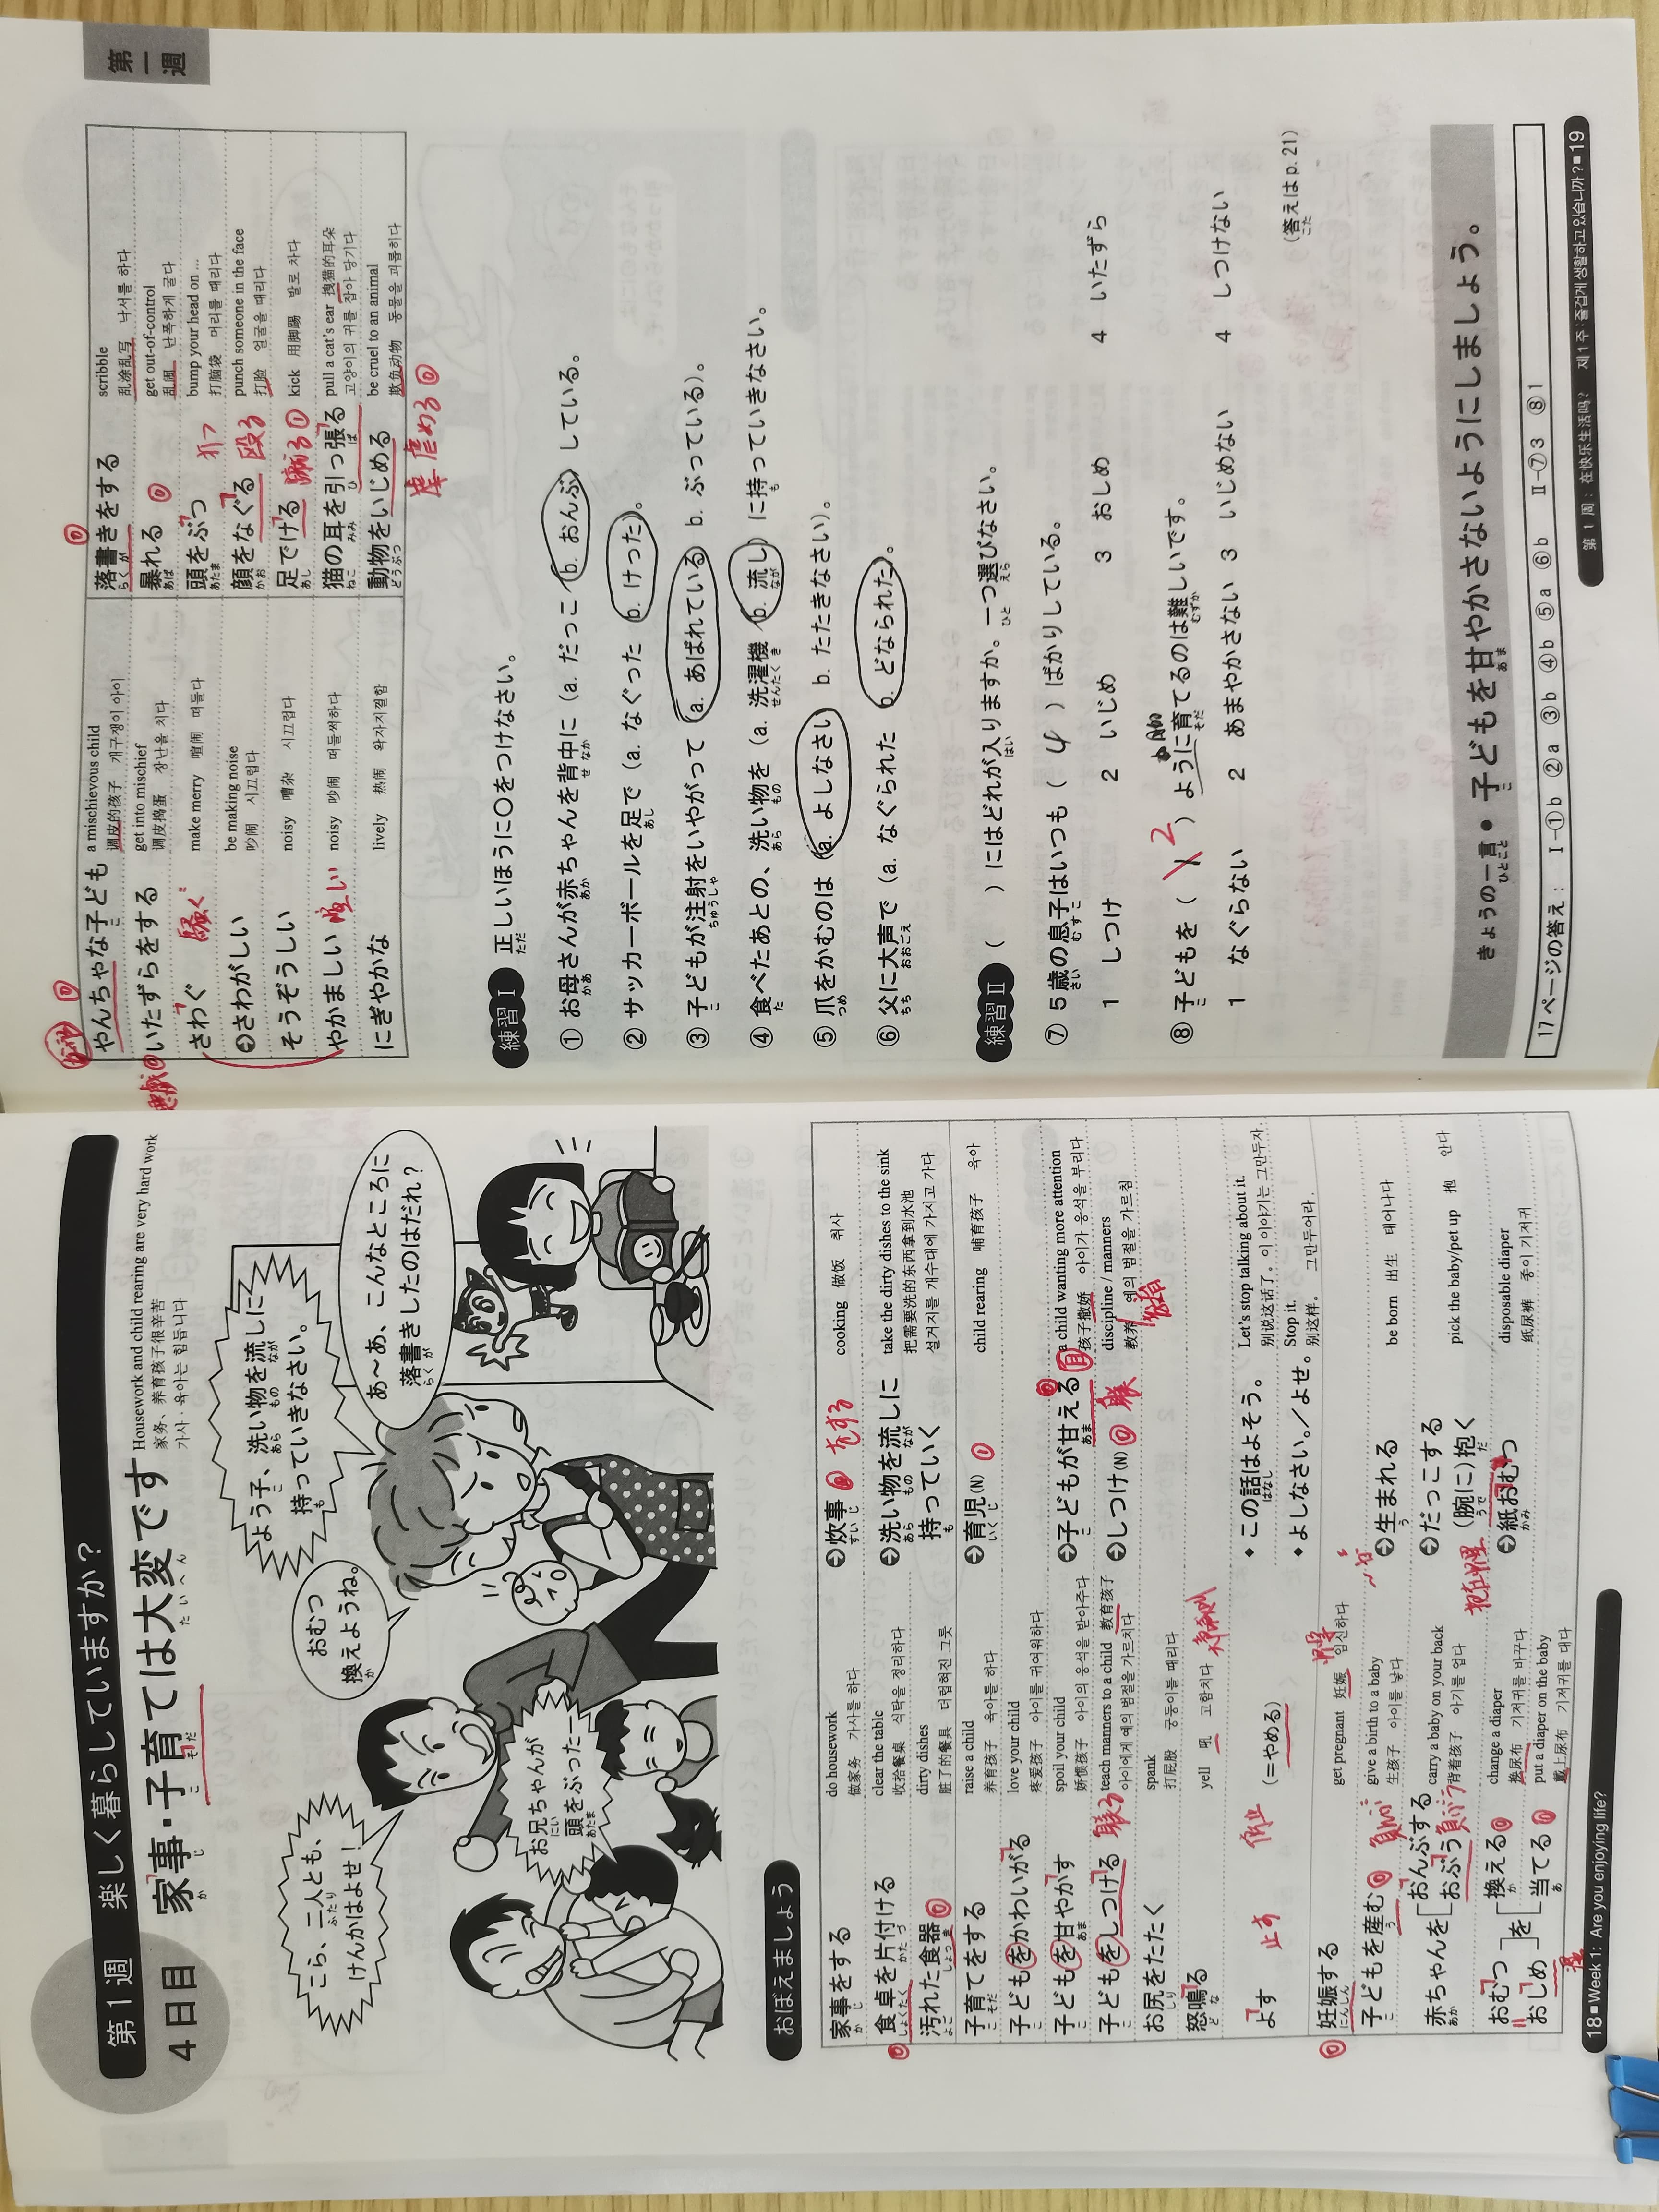 第1週 楽しく暮らしていますか？
4日目
家事・子育ては大変です
かじ こそだ たいへん
Housework and child rearing are very hard work
家务、养育孩子很辛苦
가사·육아는 힘듭니다
こら、二人とも、
けんかはよせ！
お兄ちゃんが
頭をぶったー
おむつ
換えようね。
よう子、洗い物を流しに
持っていきなさい。
あ〜あ、こんなところに
落書きしたのはだれ？
おぼえましょう
家事をする do housework 做家务 가사를 하다
➔炊事 をする cooking 做饭 취사
食卓を片付ける clear the table 收拾餐桌 식탁을 정리하다
➔洗い物を流しに持っていく take the dirty dishes to the sink 把需要洗的东西拿到水池 설거지를 개수대에 가지고 가다
汚れた食器 dirty dishes 脏了的餐具 더럽혀진 그릇
子育てをする raise a child 养育孩子 육아를 하다
➔育児(N) child rearing 哺育孩子 육아
子どもをかわいがる love your child 疼爱孩子 아이를 귀여워하다
子どもを甘やかす spoil your child 娇惯孩子 아이의 응석을 받아주다
➔子どもが甘える a child wanting more attention 孩子撒娇 아이가 응석을 부리다
子どもをしつける 躾る teach manners to a child 教育孩子 아이에게 예의 범절을 가르치다
➔しつけ(N) 躾 discipline / manners 教养 예의 범절을 가르침
お尻をたたく spank 打屁股 궁둥이를 때리다
怒鳴る yell 吼 고함치다
よす 止す 停止 (＝やめる)
◆この話はよそう。 Let's stop talking about it. 别说这话了。 이 이야기는 그만두자.
◆よしなさい。／よせ。 Stop it. 别这样。 그만두어라.
妊娠する get pregnant 妊娠 임신하다
子どもを産む give a birth to a baby 生孩子 아이를 낳다
➔生まれる be born 出生 태어나다
赤ちゃんを おんぶする
おぶう 負う carry a baby on your back 背着孩子 아기를 업다
➔だっこする
(腕に)抱く pick the baby/pet up 抱 안다
おむつ
おしめ を 換える change a diaper 换尿布 기저귀를 바꾸다
当てる put a diaper on the baby 戴上尿布 기저귀를 대다
➔紙おむつ disposable diaper 纸尿裤 종이 기저귀
18■Week 1: Are you enjoying life?
第一週
やんちゃな子ども a mischievous child 调皮的孩子 개구쟁이 아이
いたずらをする get into mischief 调皮捣蛋 장난을 치다
さわぐ 騒ぐ make merry 喧闹 떠들다
➔さわがしい be making noise 吵闹 시끄럽다
そうぞうしい noisy 嘈杂 시끄럽다
やかましい noisy 吵闹 떠들썩하다
にぎやかな lively 热闹 왁자지껄함
落書きをする scribble 乱涂乱写 낙서를 하다
暴れる get out-of-control 乱闹 난폭하게 굴다
頭をぶつ bump your head on ... 打脑袋 머리를 때리다
顔をなぐる 殴る punch someone in the face 打脸 얼굴을 때리다
足でける 蹴る kick 用脚踢 발로 차다
猫の耳を引っ張る pull a cat's ear 拽猫的耳朵 고양이의 귀를 잡아 당기다
動物をいじめる be cruel to an animal 欺负动物 동물을 괴롭히다
虐める
練習Ⅰ 正しいほうに〇をつけなさい。
① お母さんが赤ちゃんを背中に（a. だっこ b. おんぶ）している。
② サッカーボールを足で（a. なぐった b. けった）。
③ 子どもが注射をいやがって（a. あばれている b. ぶっている）。
④ 食べたあとの、洗い物を（a. 洗濯機 b. 流し）に持っていきなさい。
⑤ 爪をかむのは（a. よしなさい b. たたきなさい）。
⑥ 父に大声で（a. なぐられた b. どなられた）。
練習Ⅱ （ ）にはどれが入りますか。一つ選びなさい。
⑦ 5歳の息子はいつも（ 4 ）ばかりしている。
1 しつけ 2 いじめ 3 おしめ 4 いたずら
⑧ 子どもを（ 1 2 ）ように育てるのは難しいです。
1 なぐらない 2 あまやかさない 3 いじめない 4 しつけない
（答えはp. 21）
きょうの一言● 子どもを甘やかさないようにしましょう。
17ページの答え： Ⅰ－①b ②a ③b ④b ⑤a ⑥b Ⅱ－⑦3 ⑧1
第 1 周：在快乐生活吗？ 제 1 주 : 즐겁게 생활하고 있습니까?■19